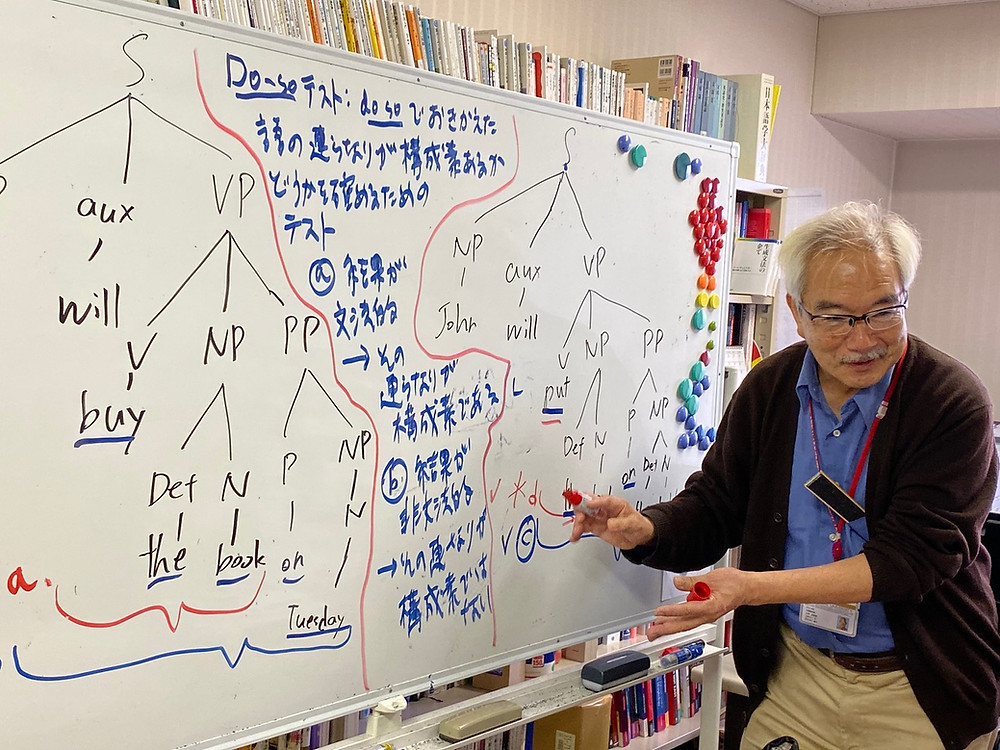 S
aux
VP
will
V
NP
PP
buy
Def
N
P
NP
N
the
book
on
Tuesday
a.
Do-soテスト: do soでおきかえた
語の連らなりが構成素あるか
どうかを確めるための
テスト
ⓐ 結果が
文法的
→その
連らなりが
構成素である
ⓑ 結果が
非文法的
→その連なりが
構成素では
ない
S
NP
aux
VP
John
will
V
NP
PP
put
Def
N
P
NP
on
Def
N
*d
ⓒ
日本語学大
生成文法の